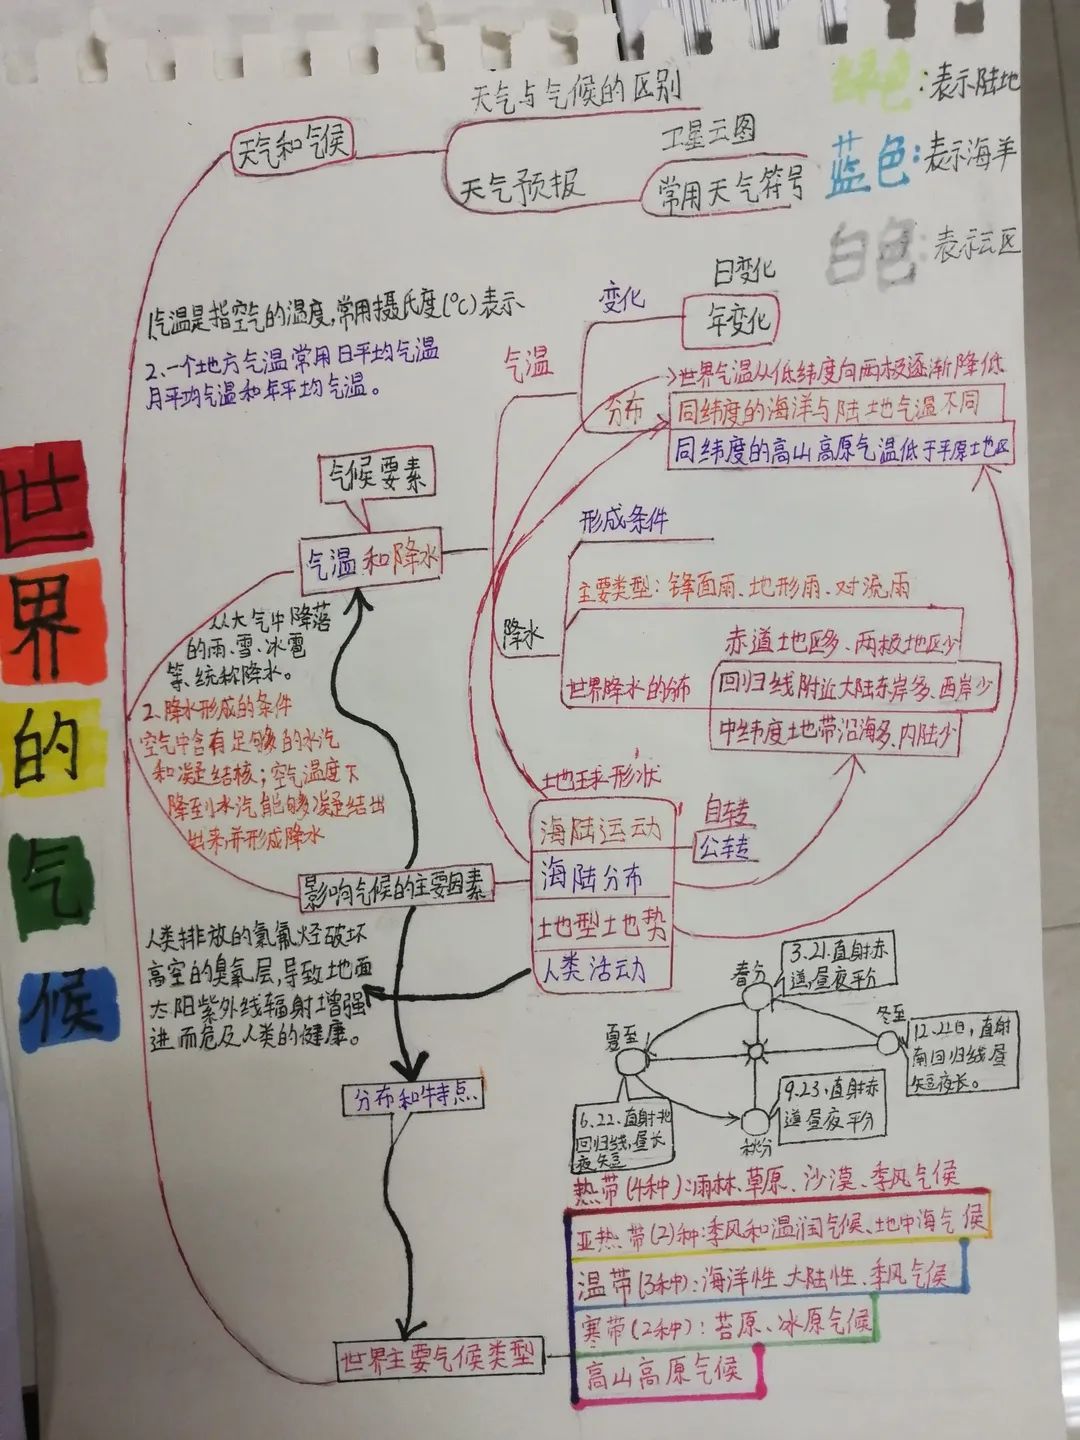 世
界
的
气
候
天气和气候
天气与气候的区别
天气预报
卫星云图
常用天气符号
绿色:表示陆地
蓝色:表示海羊
白色:表示云区
1.气温是指空气的温度,常用摄氏度(℃)表示
2.一个地方气温常用日平均气温
月平均气温和年平均气温。
气温
变化
日变化
年变化
分布
世界气温从低纬度向两极逐渐降低
同纬度的海洋与陆地气温不同
同纬度的高山高原气温低于平原地区
气候要素
气温和降水
降水
形成条件
主要类型:锋面雨、地形雨、对流雨
世界降水的分布
赤道地区多、两极地区少
回归线附近大陆东岸多、西岸少
中纬度地带沿海多、内陆少
从大气中降落
的雨、雪、冰雹
等、统称降水。
2.降水形成的条件
空气中含有足够的水汽
和凝结核;空气温度下
降到水汽能够凝结出
出来,并形成降水
影响气候的主要因素
地球形状
海陆运动
海陆分布
土地型土地势
人类活动
自转
公转
人类排放的氯氟烃破坏
高空的臭氧层,导致地面
太阳紫外线辐射增强
进而危及人类的健康。
春分
3.21.直射赤
道,昼夜平分
夏至
6.22.直射北
回归线,昼长
夜短
冬至
12.22日,直射
南回归线昼
短夜长。
秋分
9.23.直射赤
道昼夜平分
分布和特点
世界主要气候类型
热带(4种):雨林、草原、沙漠、季风气候
亚热带(2)种:季风和温润气候、地中海气候
温带(3种):海洋性、大陆性、季风气候
寒带(2种):苔原、冰原气候
高山高原气候